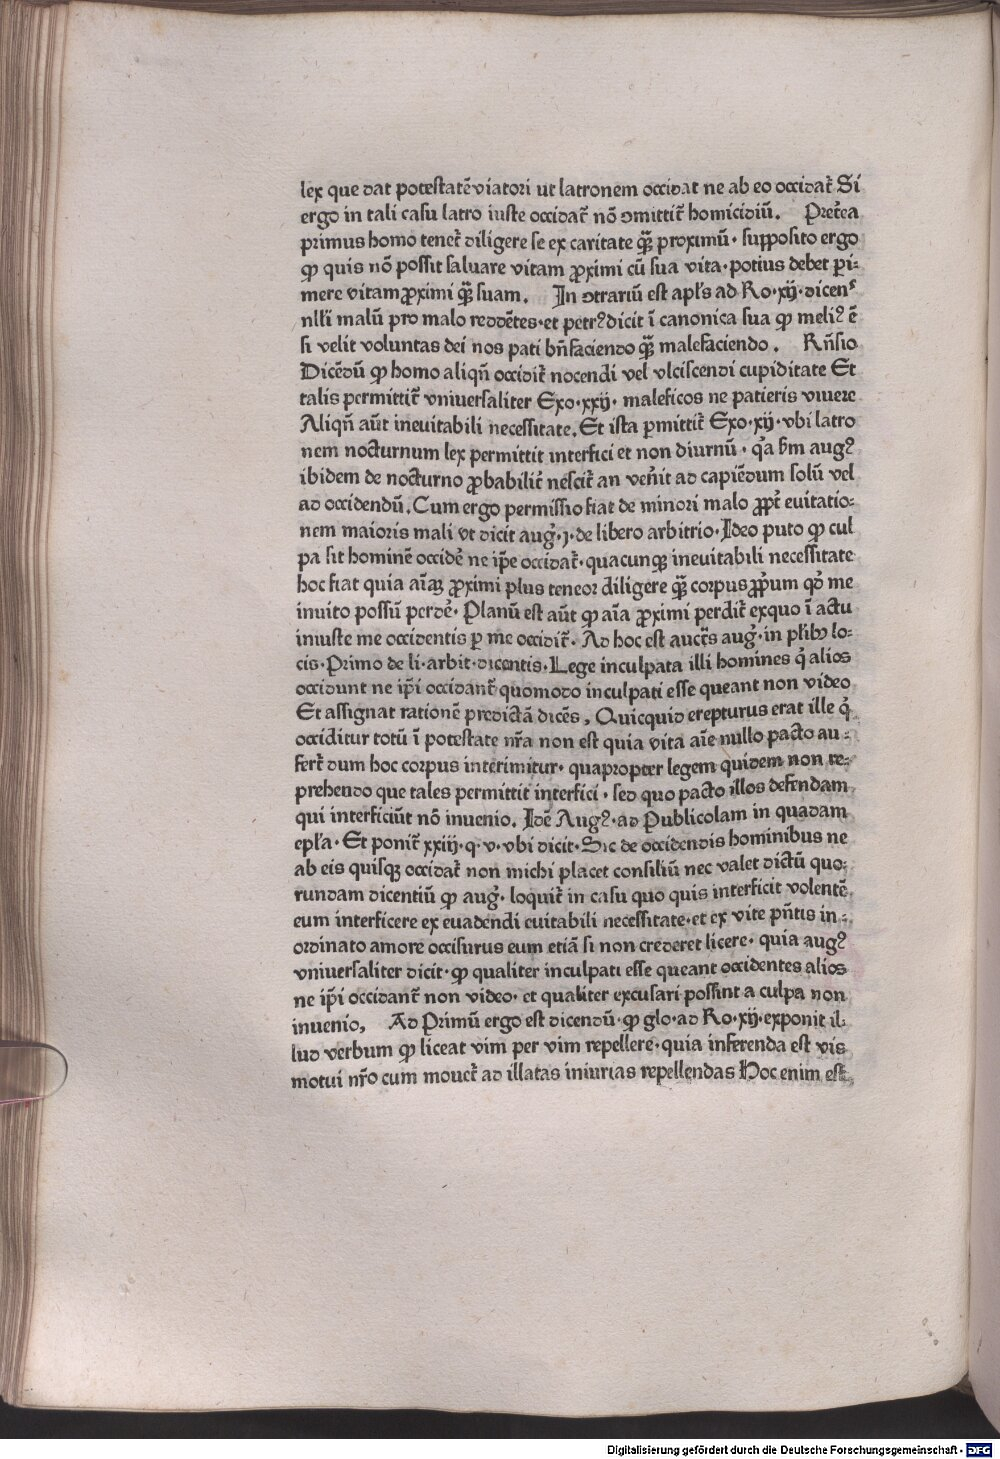 lex que dat potestatē viatori ut latronem occidat ne ab eo occidat᷑ Si
ergo in tali casu latro iuste occidat᷑ nō ꝯmittit᷑ homicidiū. Pret᷑ea
primus homo tenet᷑ diligere se ex caritate qꝫ̄ proximū · supposito ergo
ꝙ quis nō possit saluare vitam ꝓximi cū sua vita · potius debet ꝑi⸗
mere vitam ꝓximi qꝫ̄ suam. In ꝯtrariū est apl's ad Ro · xij · dicenˢ
nlli̅ malū pro malo reddētes · et petrꝰ dicit ī canonica sua ꝙ meliꝰ ē
si velit voluntas dei nos pati bn̄faciendo qꝫ̄ malefaciendo. Rn̄sio
Dicēdū ꝙ homo aliqn̄ occidit᷑ nocendi vel vlciscendi cupiditate Et
talis permittit᷑ vniuersaliter Exo · xxij · maleficos ne patieris viuere
Aliqn̄ aūt ineuitabili necessitate. Et ista ꝑmittit᷑ Exo · xij · vbi latro
nem nocturnum lex permittit interfici et non diurnū · qa̓ s̄m augꝰ
ibidem de nocturno ꝓbabilit᷑ nescit᷑ an ven̓it ad capiēdum solū vel
ad occidendū. Cum ergo permissio fiat de minori malo ꝓpt᷑ euitatio⸗
nem maioris mali vt dicit aug᷑ · j · de libero arbitrio · Ideo puto ꝙ cul
pa sit hominē occide᷑ ne ip̄e occidat᷑ · quacunqꝫ ineuitabili necessitate
hoc fiat quia aīaꝫ ꝓximi plus teneor diligere qꝫ̄ corpus ꝓp̄um qd̓ me
inuito possū perde᷑ · Planū est aūt ꝙ aīa ꝓximi perdit᷑ exquo ī actu
iniuste me occidentis ꝑ me occidit᷑ · Ad hoc est auctt̄s aug᷑ · in pl̄ibꝫ lo⸗
cis · Primo de li · arbit · dicentis · Lege inculpata illi homines q̓ alios
occidunt ne ip̄i occidant᷑ quomodo inculpati esse queant non video
Et assignat rationē predictā dicēs, Quicquid erepturus erat ille q̓
occiditur totū ī potestate nr̄a non est quia vita aīe nullo pacto au⸗
fert᷑ dum hoc corpus interimitur · quapropter legem quidem non re⸗
prehendo que tales permittit interfici · sed quo pacto illos defendam
qui interficiūt nō inuenio. Idē Augꝰ · ad Publicolam in quadam
epl̄a · Et ponit᷑ xxiij · q · v · vbi dicit · Sic de occidendis hominibus ne
ab eis quisqꝫ occidat᷑ non michi placet consiliū nec valet dictū quo⸗
rundam dicentiū ꝙ aug᷑ · loquit᷑ in casu quo quis interficit volentē
eum interficere ex euadendi euitabili necessitate · et ex vite pn̄tis in⸗
ordinato amore occisurus eum etiā si non crederet licere · quia augꝰ
vniuersaliter dicit · ꝙ qualiter inculpati esse queant occidentes alios
ne ip̄i occidant᷑ non video · et qualiter excusari possint a culpa non
inuenio, Ad Primū ergo est dicendū · ꝙ glo · ad Ro · xij · exponit il⸗
lud verbum ꝙ liceat vim per vim repellere · quia inferenda est vis
motui nr̄o cum mouet᷑ ad illatas iniurias repellendas Hoc enim est
Digitalisierung gefördert durch die Deutsche Forschungsgemeinschaft - DFG